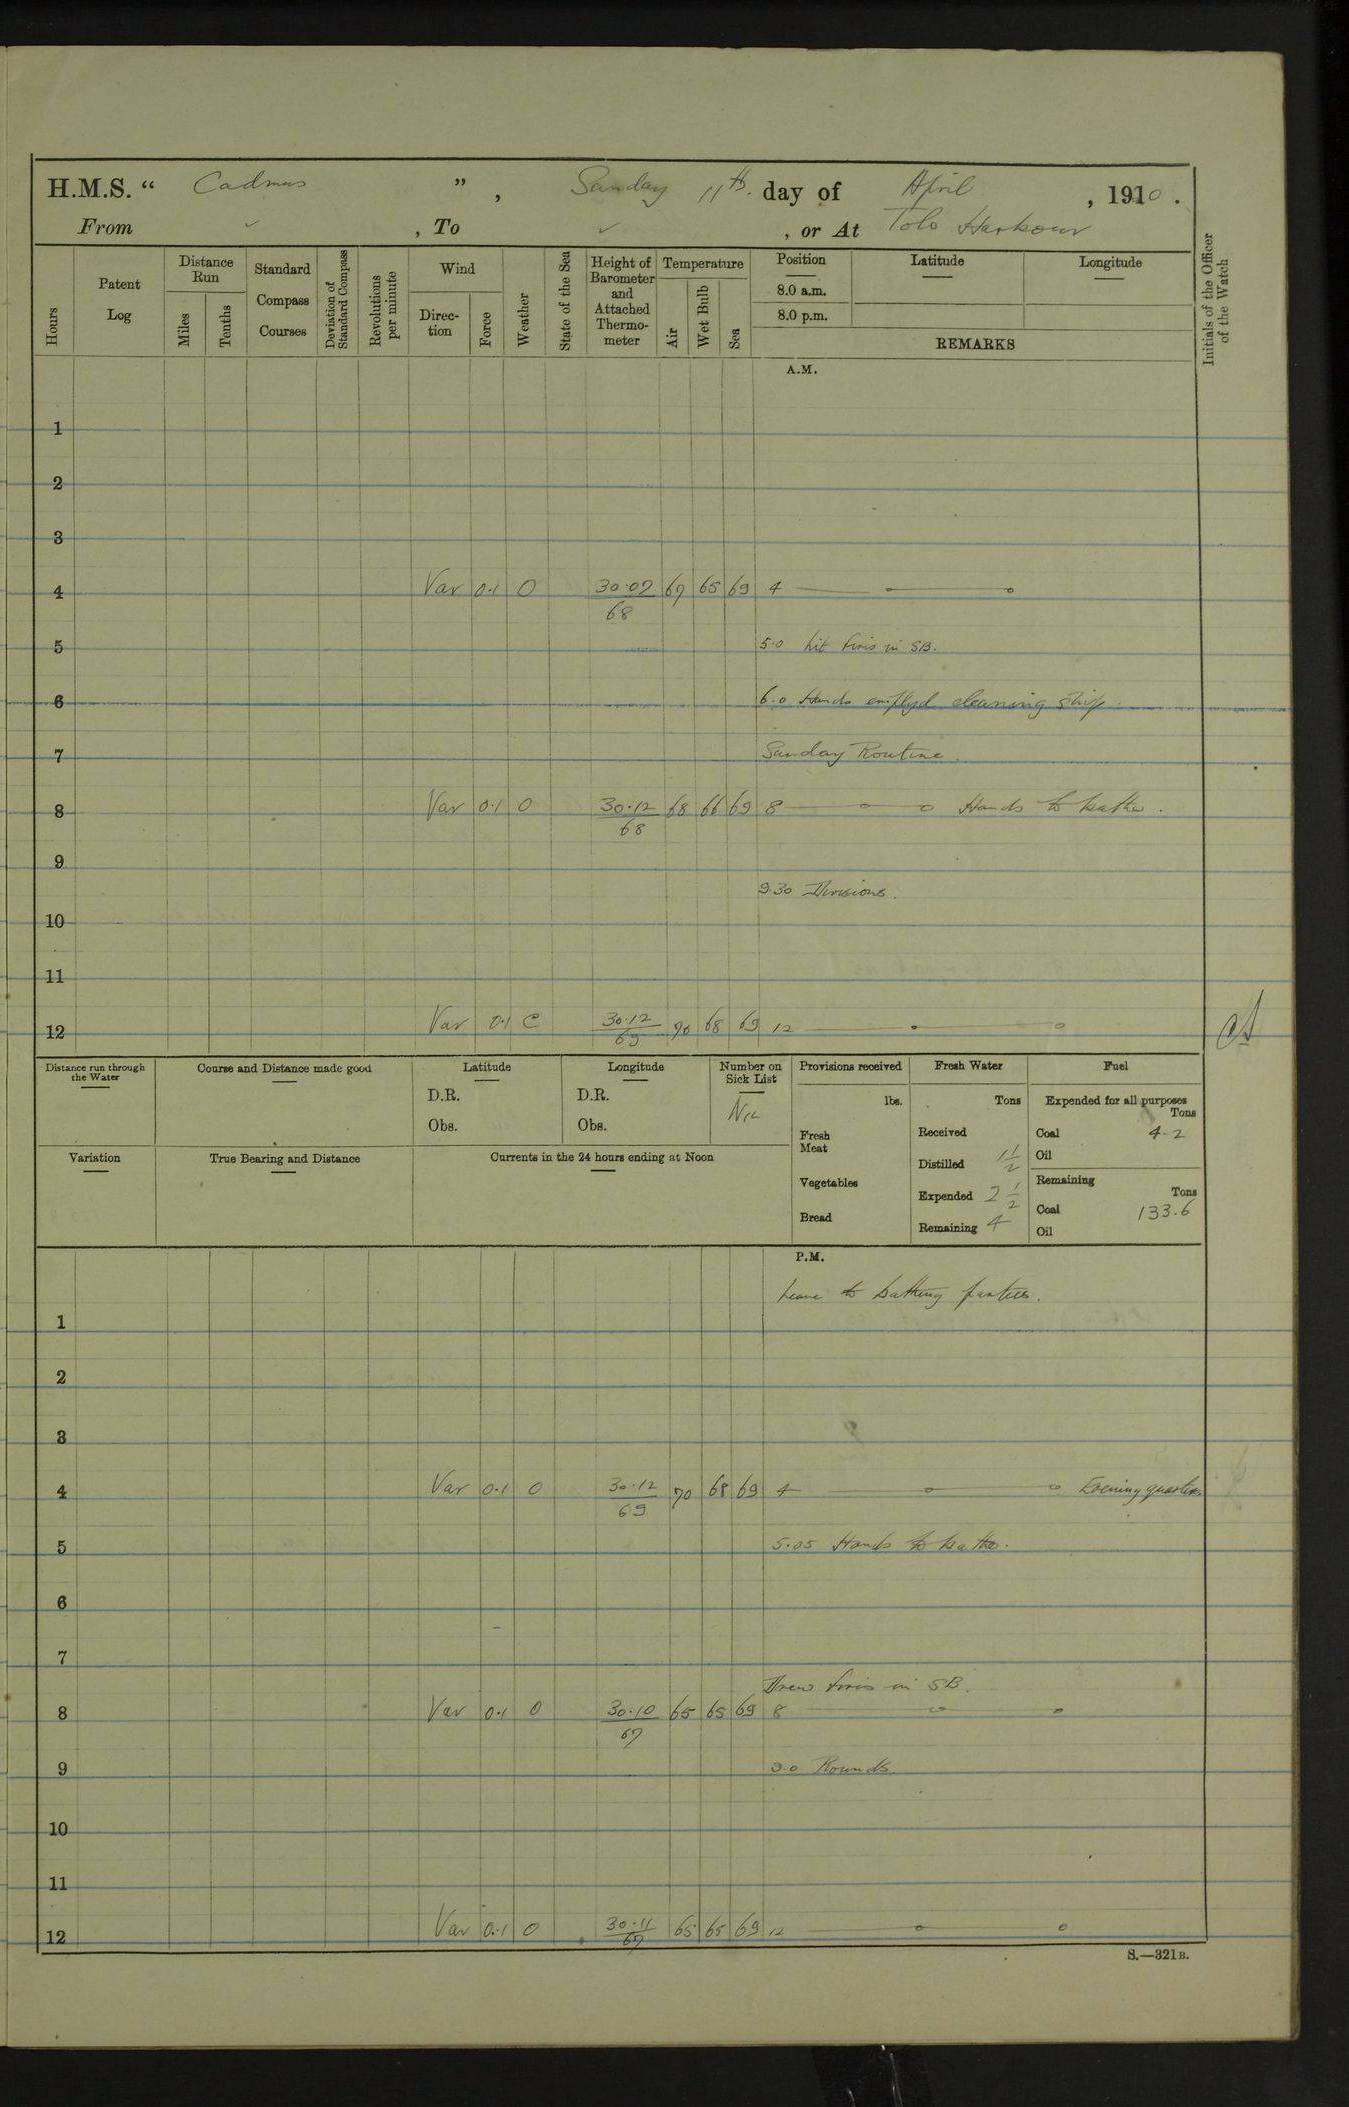 H.M.S. “ Cadmus ” , Sunday 11th. day of April , 1910 .
From ✓ , To ✓ , or At Tolo Harbour
Hours
Patent Log
Distance Run
Miles
Tenths
Standard Compass Courses
Deviation of Standard Compass
Revolutions per minute
Wind
Direction
Force
Weather
State of the Sea
Height of Barometer and Attached Thermo-meter
Temperature
Air
Wet Bulb
Sea
Position
8.0 a.m.
8.0 p.m.
Latitude
Longitude
REMARKS
Initials of the Officer of the Watch
A.M.
1
2
3
4 Var 0.1 O 30.07 67 65 69 4
68
5 5.0 Lit fires in SB.
6 6.0 Hands emplyd cleaning ship.
7 Sunday Routine.
8 Var 0.1 O 30.12 68 66 69 8 Hands to bathe.
68
9
9.30 Divisions.
10
11
12 Var 0.1 C 30.12 70 68 69 12
69
Distance run through the Water
Course and Distance made good
Latitude
D.R.
Obs.
Longitude
D.R.
Obs.
Number on Sick List
Nil
Variation
True Bearing and Distance
Currents in the 24 hours ending at Noon
Provisions received
lbs.
Fresh Meat
Vegetables
Bread
Fresh Water
Tons
Received
Distilled 1 1/2
Expended 2 1/2
Remaining 4
Fuel
Expended for all purposes
Tons
Coal 4.2
Oil
Remaining
Tons
Coal 133.6
Oil
P.M.
Leave to bathing parties.
1
2
3
4 Var 0.1 O 30.12 70 68 69 4 Evening quarters
69
5 5.05 Hands to bathe.
6
7
Drew fires in SB.
8 Var 0.1 O 30.10 65 65 69 8
67
9 9.0 Rounds
10
11
12 Var 0.1 O 30.11 65 65 69 12
67
S.—321B.